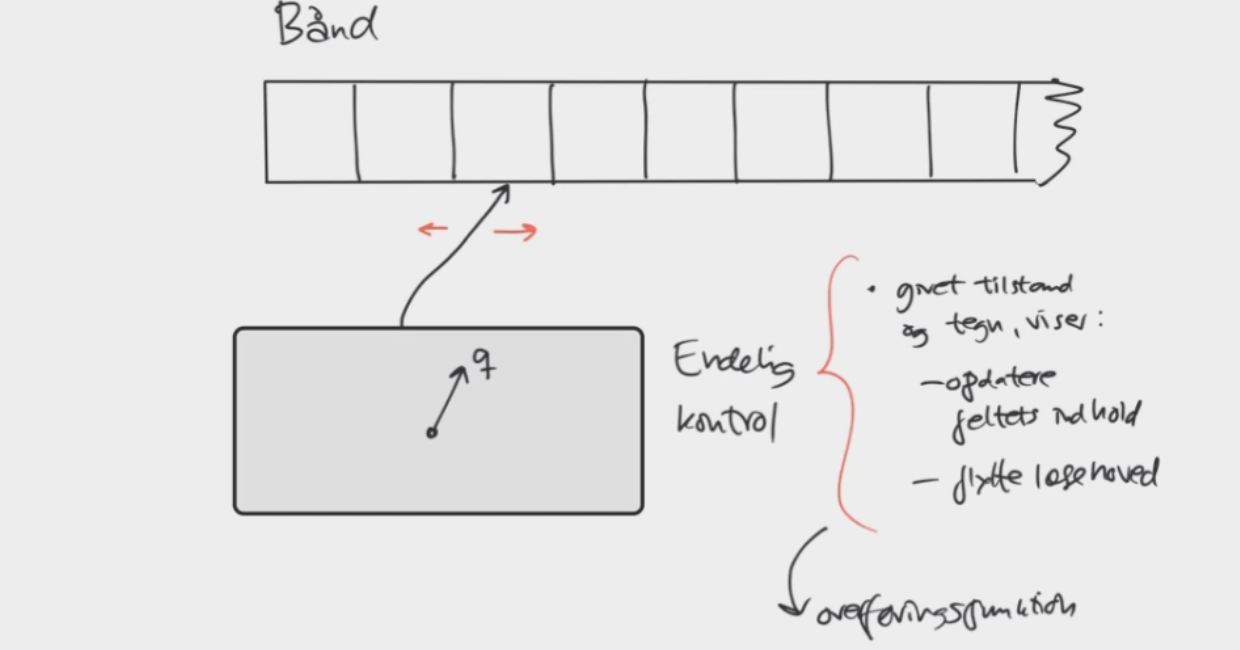 Bånd
q
Endelig
kontrol
• givet tilstand
og tegn, viser:
– opdatere
feltets indhold
– flytte læsehoved
overføringsfunktion